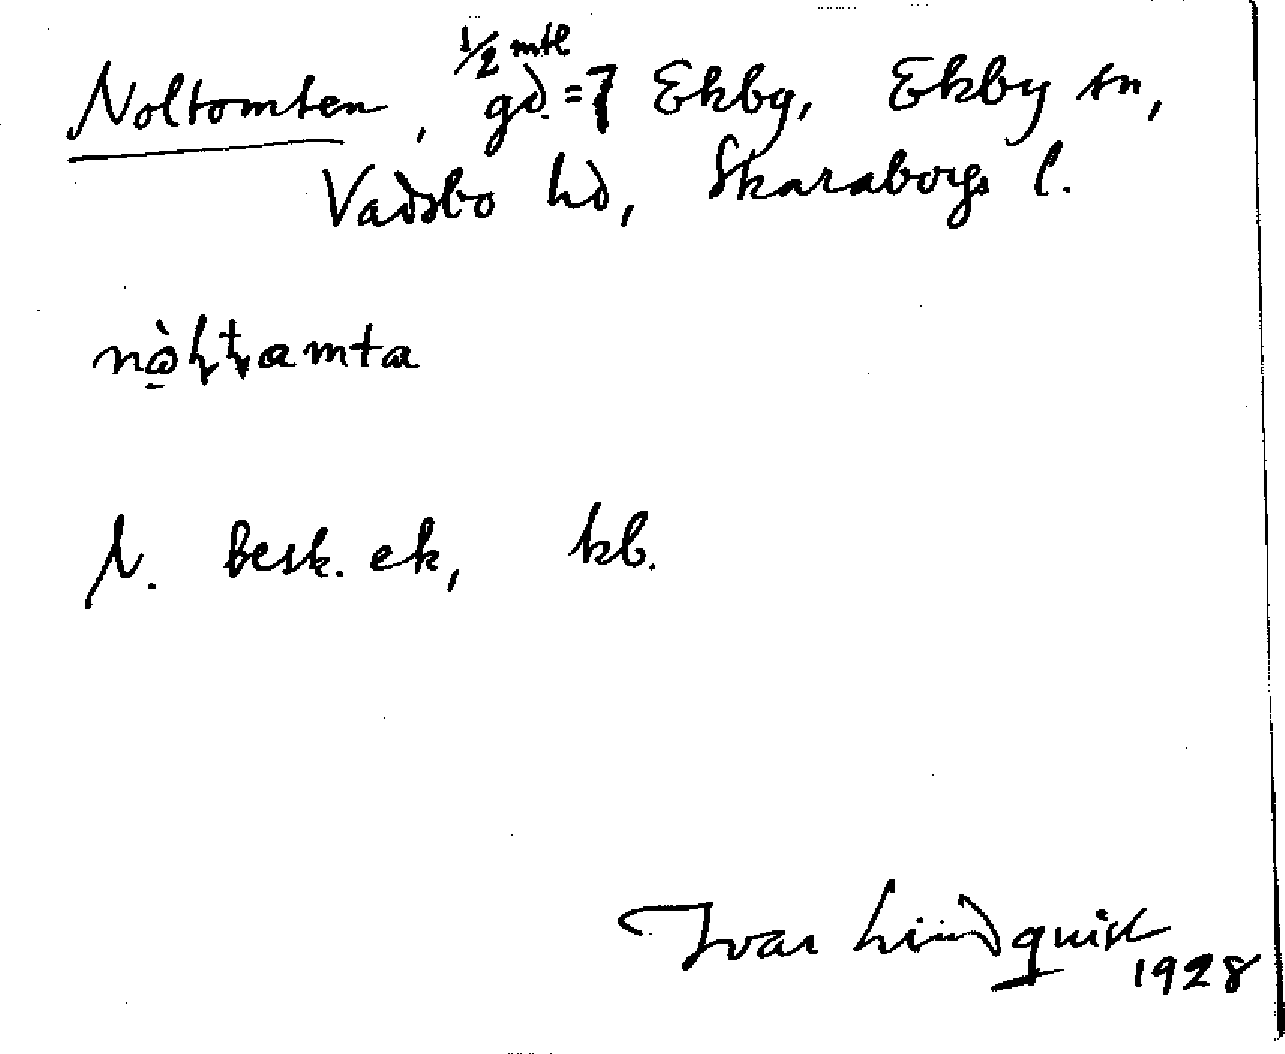 Noltomten, 1/2 mtl gd. = 7 Ekby, Ekby sn,
Vadsbo hd, Skaraborgs l.
N. besk. ek, kb.
Ivar Lindquist
1928